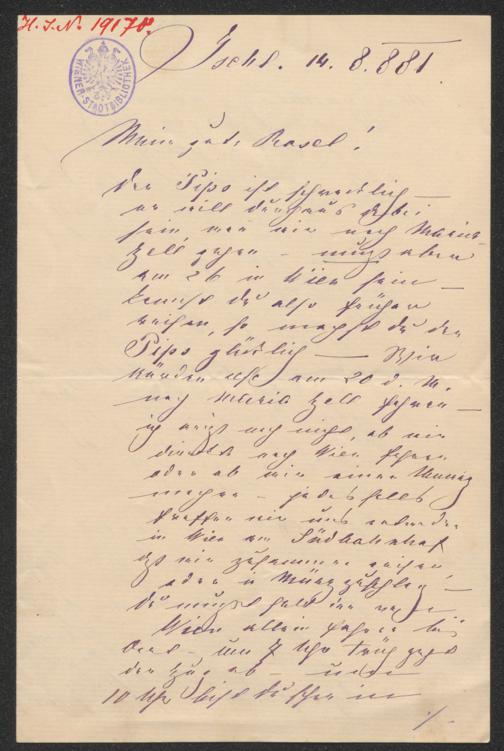 H. I. N. 19178.
WIENER-STADTBIBLIOTHEK
Ischl. 14. 8. 881.
Mein gute Rosel!
Der Pipo ist schrecklich —
er will durchaus dabei
sein, wen wir nach Maria-
zell gehen — muß aber
am 26 in Wien sein —
kannst du also früher
reisen, so machst du den
Pipo glücklich — Wir
würden also am 20 d. M.
nach Maria Zell fahren —
ich weiß noch nicht, ob wir
direkt nach Wien fahren
oder ob wir einen
machen — jedesfalls
treffen wir uns entweder
in Wien am Südbahnhof
wir zusammen reisen,
oder in Mürzzuschlag —
du mußt halt von
Wien allein fahren bis
— um 7 Uhr früh geht
der Zug ab — um
10 Uhr bist du schon in
./.